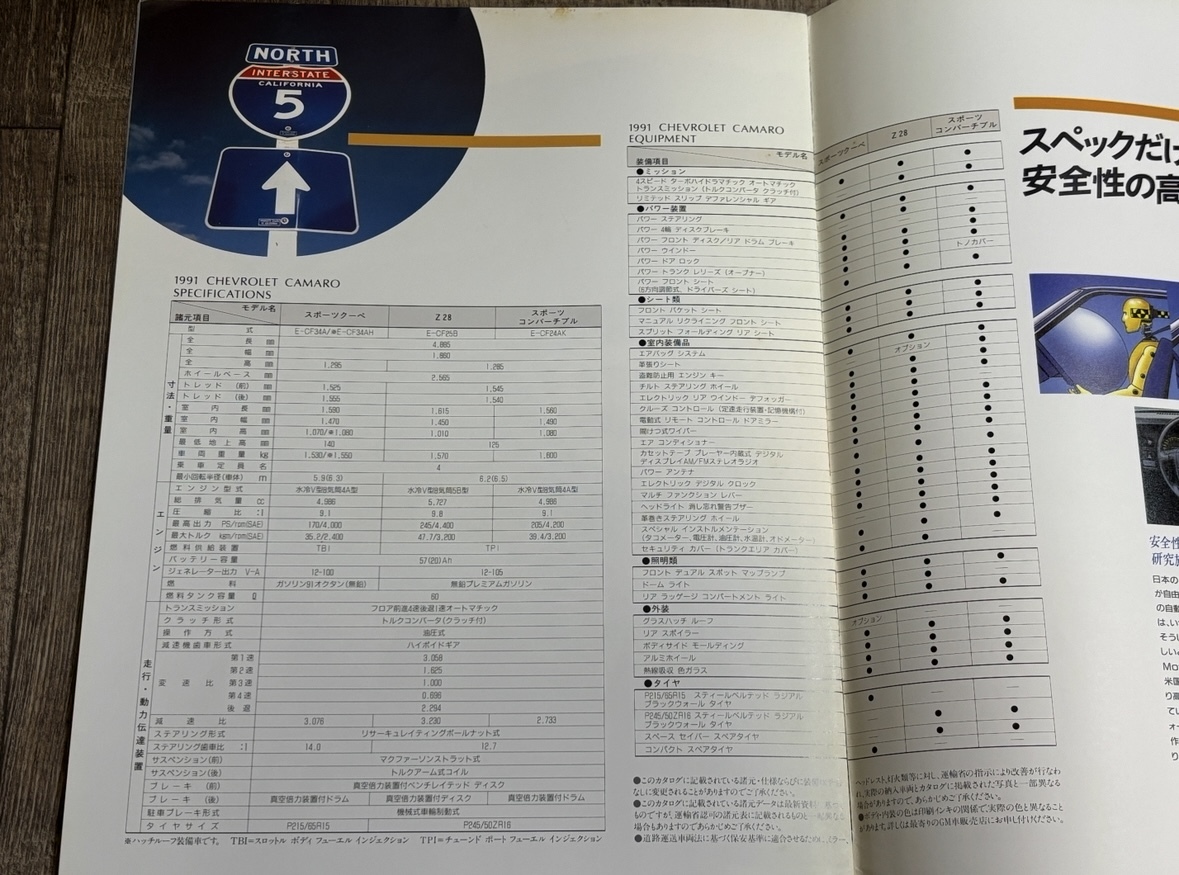 NORTH
INTERSTATE
CALIFORNIA
5
1991 CHEVROLET CAMARO
SPECIFICATIONS
モデル名
諸元項目
スポーツクーペ
Z 28
スポーツ
コンバーチブル
型 式 E-CF34A/※E-CF34AH E-CF25B E-CF24AK
寸法・重量
全 長 mm 4,885
全 幅 mm 1,860
全 高 mm 1,295 1,285
ホイールベース mm 2,565
トレッド (前) mm 1,525 1,545
トレッド (後) mm 1,555 1,540
室 内 長 mm 1,590 1,615 1,560
室 内 幅 mm 1,470 1,450 1,490
室 内 高 mm 1,070/※1,080 1,010 1,080
最 低 地 上 高 mm 140 125
車 両 重 量 kg 1,530/※1,550 1,570 1,600
乗 車 定 員 名 4
最小回転半径(車体) m 5.9(6.3) 6.2(6.5)
エンジン
エ ン ジ ン 型 式 水冷V型8気筒4A型 水冷V型8気筒5B型 水冷V型8気筒4A型
総 排 気 量 cc 4,988 5,727 4,988
圧 縮 比 :1 9.1 9.8 9.1
最高出力 PS/rpm(SAE) 170/4,000 245/4,400 205/4,200
最大トルク kgm/rpm(SAE) 35.2/2,400 47.7/3,200 39.4/3,200
燃 料 供 給 装 置 TBI TPI
バッテリー容量 57(20)Ah
ジェネレーター出力 V-A 12-100 12-105
燃 料 ガソリン91オクタン(無鉛) 無鉛プレミアムガソリン
燃料タンク容量 ℓ 60
走行・動力伝達装置
トランスミッション フロア前進4速後退1速オートマチック
ク ラ ッ チ 形 式 トルクコンバータ(クラッチ付)
操 作 方 式 油圧式
減 速 機 歯 車 形 式 ハイポイドギア
変 速 比
第1速 3.058
第2速 1.625
第3速 1.000
第4速 0.696
後 退 2.294
減 速 比 3.076 3.230 2.733
ステアリング形式 リサーキュレイティングボールナット式
ステアリング歯車比 :1 14.0 12.7
サスペンション(前) マクファーソンストラット式
サスペンション(後) トルクアーム式コイル
ブ レ ー キ (前) 真空倍力装置付ベンチレイテッド ディスク
ブ レ ー キ (後) 真空倍力装置付ドラム 真空倍力装置付ディスク 真空倍力装置付ドラム
駐車ブレーキ形式 機械式車輪制動式
タ イ ヤ サ イ ズ P215/65R15 P245/50ZR16
※ハッチルーフ装備車です。 TBI=スロットル ボディ フューエル インジェクション TPI=チューンド ポート フューエル インジェクション
1991 CHEVROLET CAMARO
EQUIPMENT
モデル名
装備項目
スポーツクーペ
Z 28
スポーツ
コンバーチブル
●ミッション
4スピード ターボハイドラマチック オートマチック
トランスミッション (トルクコンバータ クラッチ付)
リミテッド スリップ デファレンシャル ギア
●パワー装置
パワー ステアリング
パワー 4輪 ディスクブレーキ
パワー フロント ディスク/リア ドラム ブレーキ
パワー ウインドー
パワー ドア ロック
パワー トランク レリーズ (オープナー)
トノカバー
パワー フロント シート
(6方向調節式、ドライバーズ シート)
●シート類
フロント バケット シート
マニュアル リクライニング フロント シート
スプリット フォールディング リア シート
●室内装備品
エアバッグ システム
革張りシート
オプション
盗難防止用 エンジン キー
チルト ステアリング ホイール
エレクトリック リア ウインドー デフォッガー
クルーズ コントロール (定速走行装置・記憶機構付)
電動式 リモート コントロール ドアミラー
間けつ式ワイパー
エア コンディショナー
カセットテープ プレーヤー内蔵式 デジタル
ディスプレイAM/FMステレオラジオ
パワー アンテナ
エレクトリック デジタル クロック
マルチ ファンクション レバー
ヘッドライト 消し忘れ警告ブザー
革巻きステアリング ホイール
スペシャル インストルメンテーション
(タコメーター、電圧計、油圧計、水温計、オドメーター)
セキュリティ カバー (トランクエリア カバー)
●照明類
フロント デュアル スポット マップランプ
ドーム ライト
リア ラッゲージ コンパートメント ライト
●外装
グラスハッチ ルーフ
オプション
リア スポイラー
ボディサイド モールディング
アルミホイール
熱線吸収 色ガラス
●タイヤ
P215/65R15 スティールベルテッド ラジアル
ブラックウォール タイヤ
P245/50ZR16 スティールベルテッド ラジアル
ブラックウォール タイヤ
スペース セイバー スペアタイヤ
コンパクト スペアタイヤ
●このカタログに記載されている諸元・仕様ならびに装備
なしに変更されることがありますのでご了承ください。
●このカタログに記載されている諸元データは最新資料
ものですが、運輸省認可の諸元表に記載されるものと
場合もありますのであらかじめご了承ください。
●道路運送車両法に基づく保安基準に適合させるため
ヘッドレスト、灯火類等に対し、運輸省の指示により改善が行なわ
れ、実際の納入車両とカタログに掲載された写真と一部異なる
場合がありますので、あらかじめご了承ください。
●ボディ・内装の色は印刷インキの関係で、実際の色と異なること
があります。詳しくは最寄りのGM車販売店にお申し付けください。
スペックだけ
安全性の高
安全性
研究施
日本の
が自由
の自動
は、い
そうし
しい
Mo
米国
り高
てい
ォ
作
り